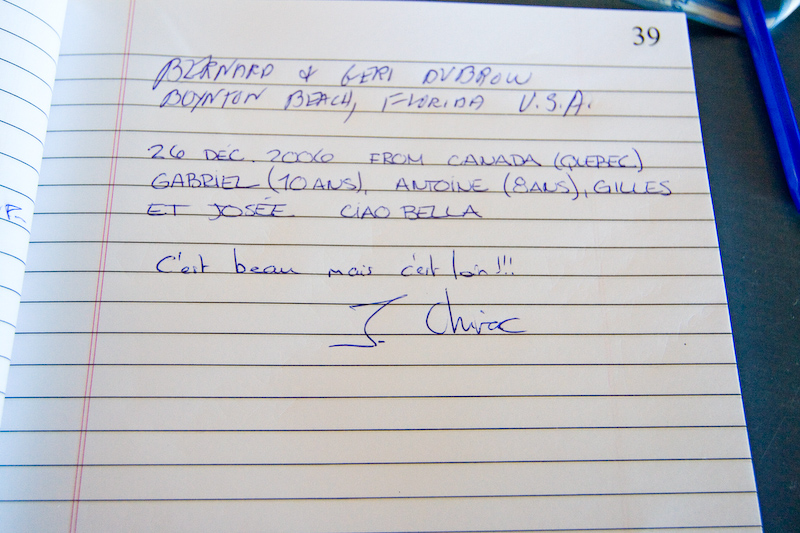 39
BERNARD & GERI DUBROW
BOYNTON BEACH, FLORIDA U.S.A.
26 DÉC. 2006 FROM CANADA (QUEBEC)
GABRIEL (10 ANS), ANTOINE (8 ANS), GILLES
ET JOSÉE. CIAO BELLA
C'est beau mais c'est loin!!!
J. Chirac